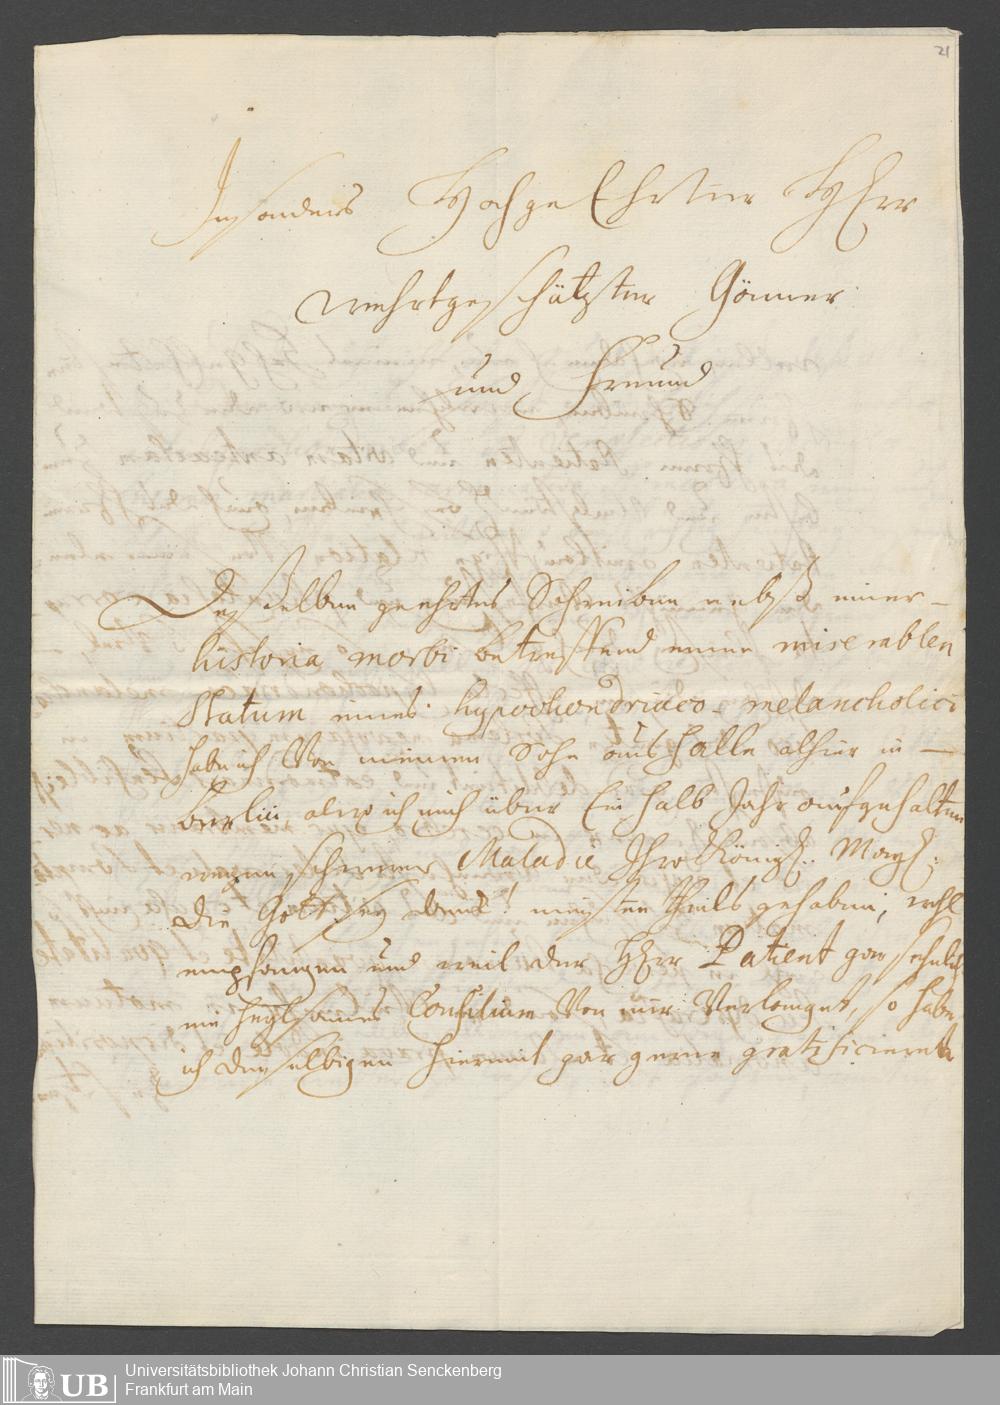 21
Insonders HochgeEhrter HErr
wehrtgeschätzter Gönner
und Freund
Deßelben geehrtes Schreiben nebst einer
historia morbi betreffend einen miserablen
Statum eines hypochondriaco-melancholici
habe ich Von meinem Sohn aus Halle alhier in
Berlin, alwo ich mich über Ein halb Jahr aufgehalten
wegen schwerer Maladie Ihro Königl. Mayt:
die Gott sey danck! meisten theils gehoben, wohl
empfangen und weil der HErr Patient gar sehnlich
ein heylsames Consilium Von mir Verlanget, so habe
ich demselbigen hiermit gar gerne gratificieren
Universitätsbibliothek Johann Christian Senckenberg
Frankfurt am Main
UB